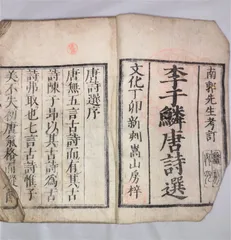 南郭先生考訂
李于鱗唐詩選
文化丁卯新刻嵩山房梓
唐詩選序
唐無五言古詩而有其古
詩陳子昂以其古詩為古
詩弗取也七言古詩惟子
美不失初唐氣格而